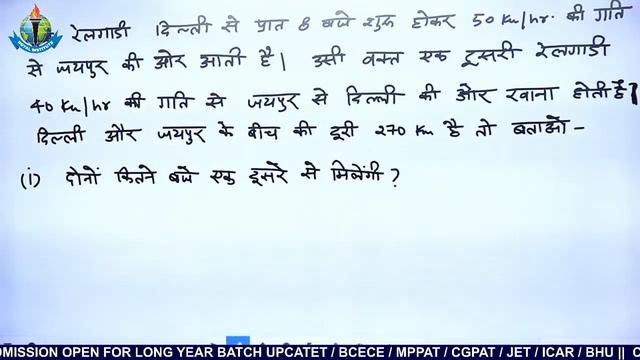 रेलगाडी दिल्ली से प्रात 8 बजे शुरु होकर 50 Km/hr. की गति
से जयपुर की ओर आती है। उसी वक्त एक दूसरी रेलगाडी
40 Km/hr की गति से जयपुर से दिल्ली की ओर रवाना होती है।
दिल्ली और जयपुर के बीच की दूरी 270 Km है तो बताओ -
(i) दोनों कितने बजे एक दूसरे से मिलेंगी ?
DMISSION OPEN FOR LONG YEAR BATCH UPCATET / BCECE / MPPAT / CGPAT / JET / ICAR / BHU || C